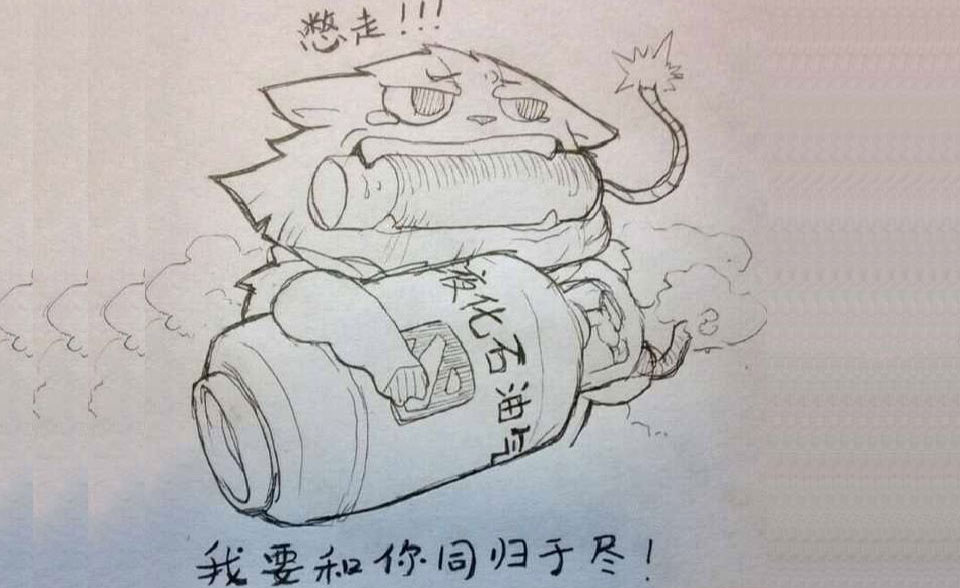 憋走!!!
液化石油气
我要和你同归于尽!